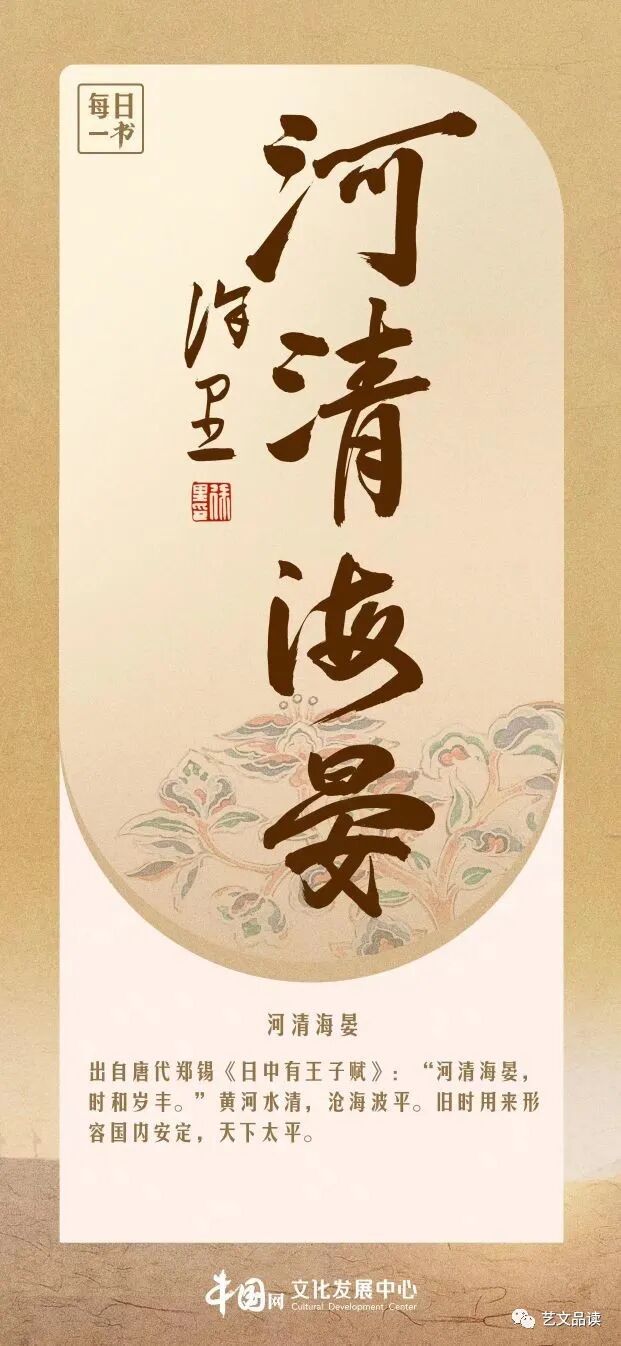 每日
一书
河清海晏
徐卫
河清海晏
出自唐代郑锡《日中有王子赋》：“河清海晏，
时和岁丰。”黄河水清，沧海波平。旧时用来形
容国内安定，天下太平。
中国网 文化发展中心
Cultural Development Center
艺文品读